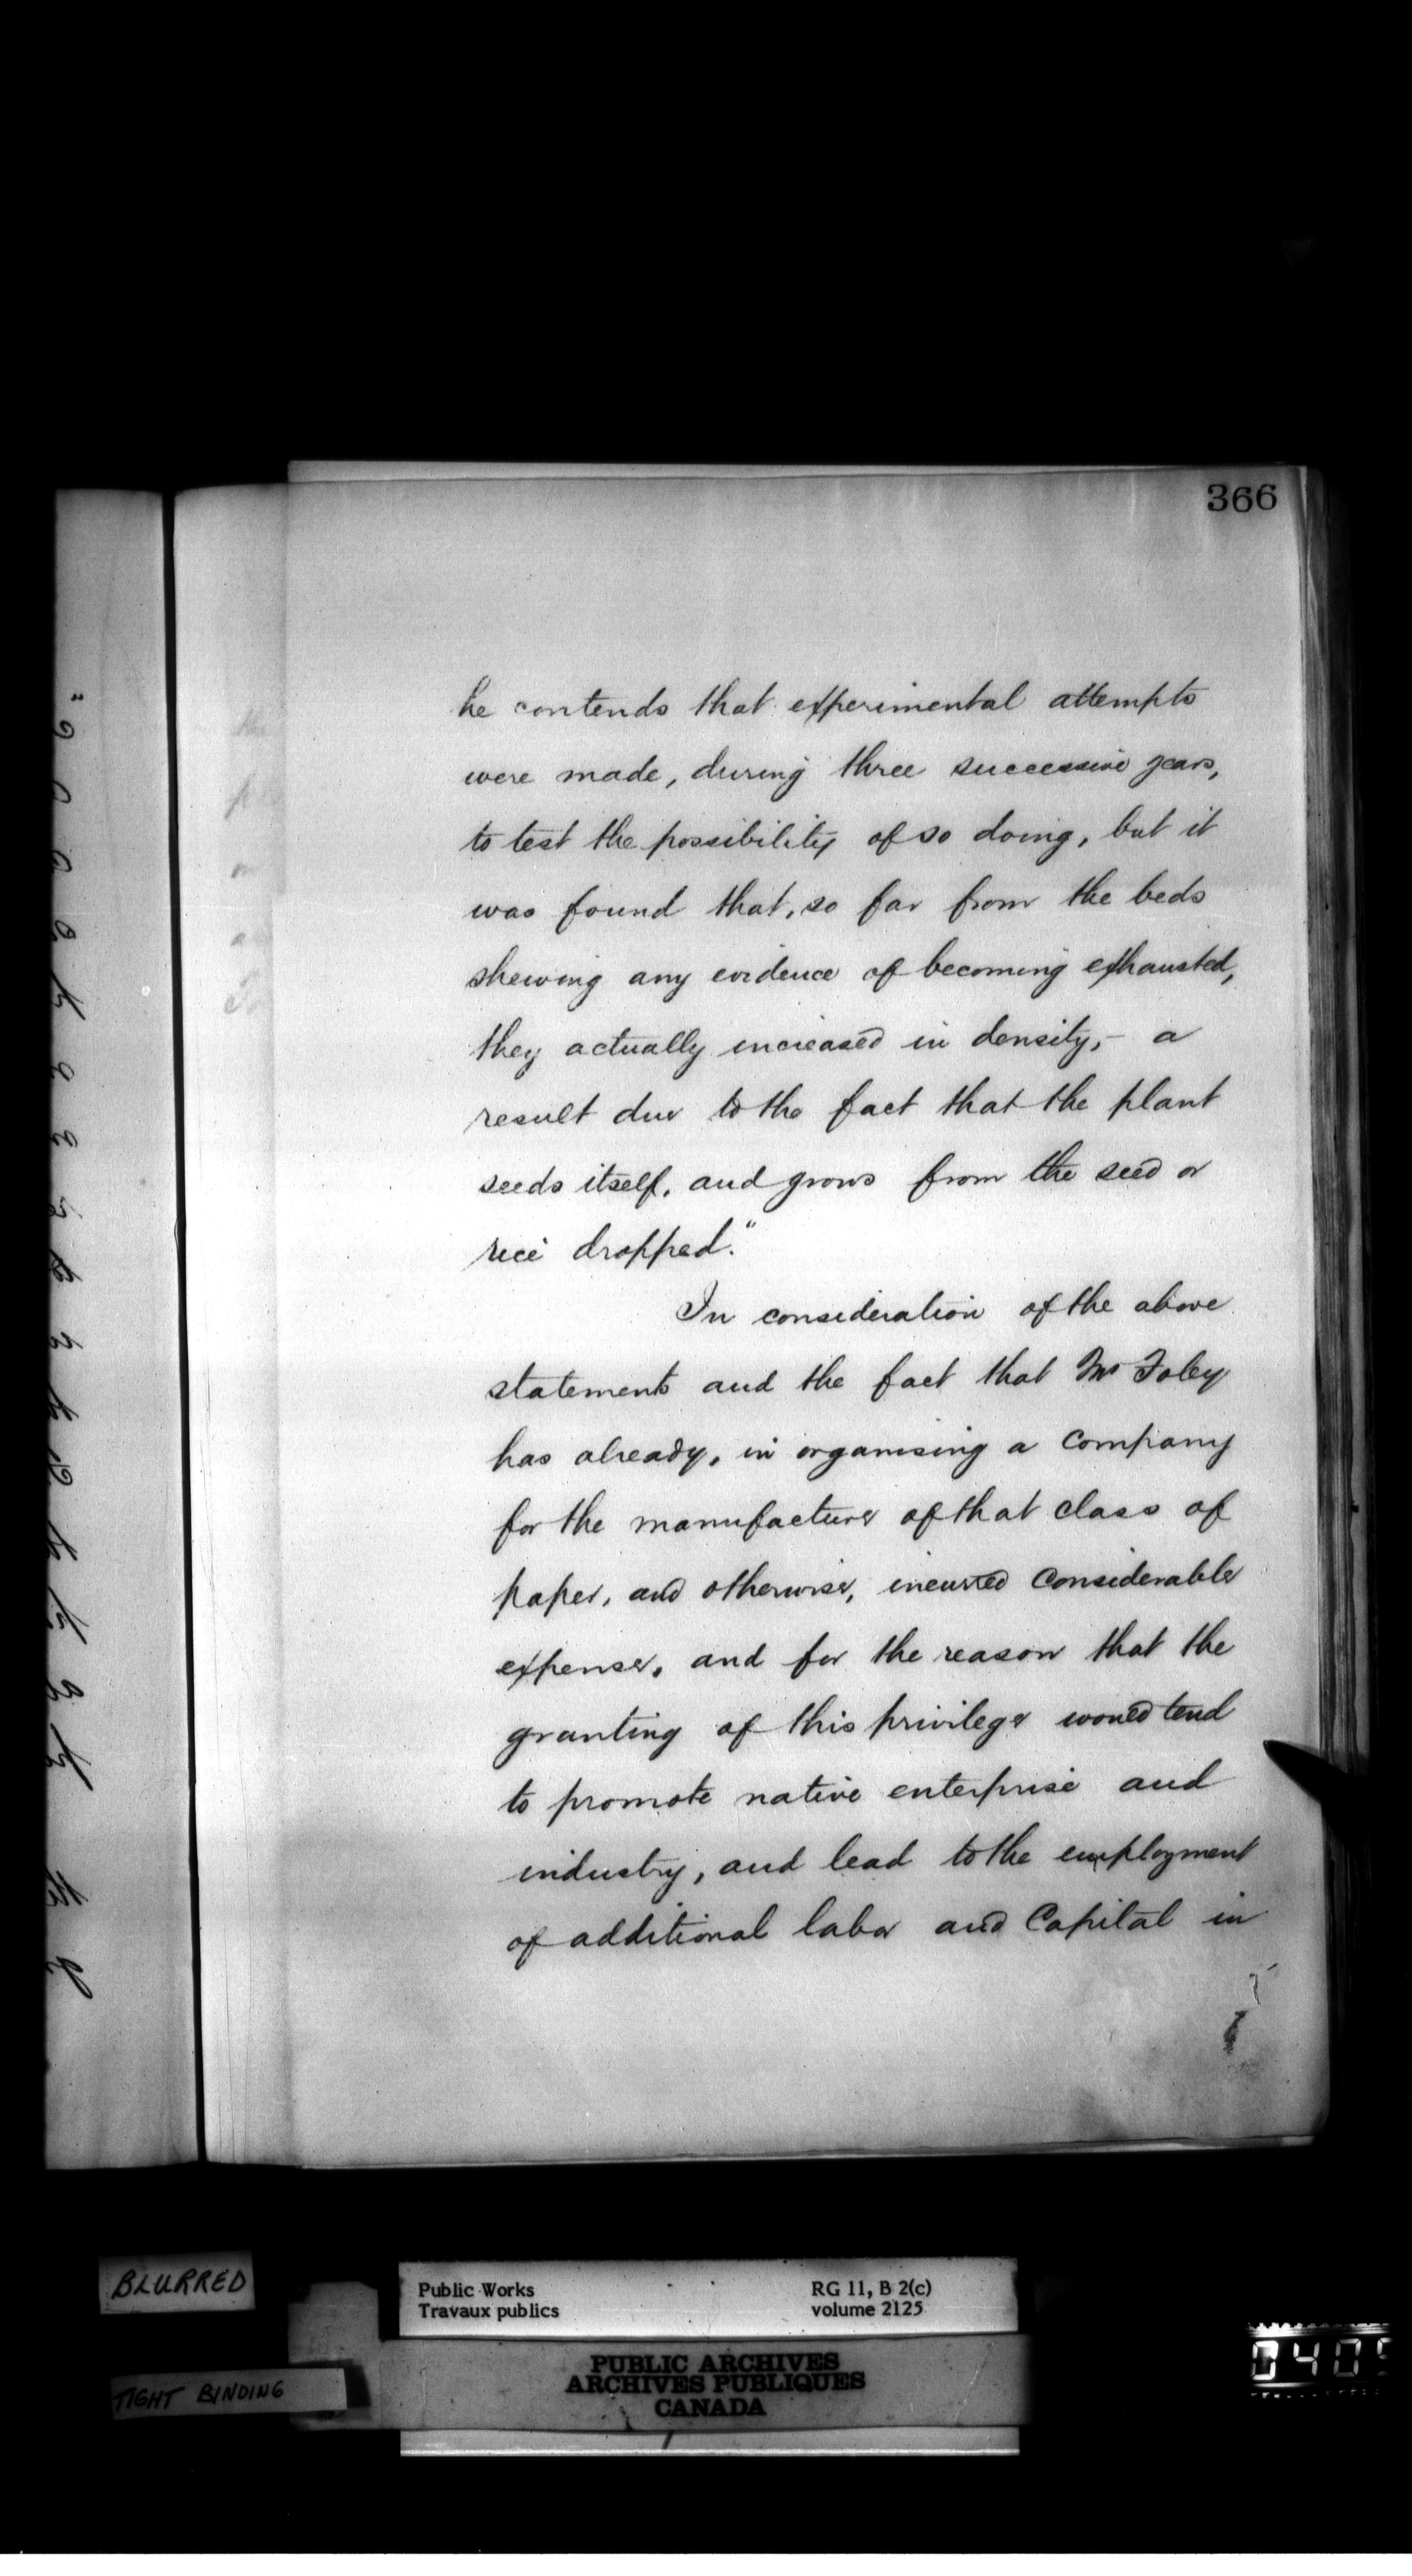 366
he contends that experimental attempts
were made, during three successive years,
to test the possibility of so doing, but it
was found that, so far from the beds
shewing any evidence of becoming exhausted,
they actually increased in density, - a
result due to the fact that the plant
seeds itself, and grows from the seed or
rice dropped."
In consideration of the above
statements and the fact that Mr Foley
has already, in organising a company
for the manufacture of that class of
paper, and otherwise, incurred considerable
expense, and for the reason that the
granting of this privilege would tend
to promote native enterprise and
industry, and lead to the employment
of additional labor and Capital in
BLURRED
Public Works
Travaux publics
RG 11, B 2(c)
volume 2125
TIGHT BINDING
PUBLIC ARCHIVES
ARCHIVES PUBLIQUES
CANADA